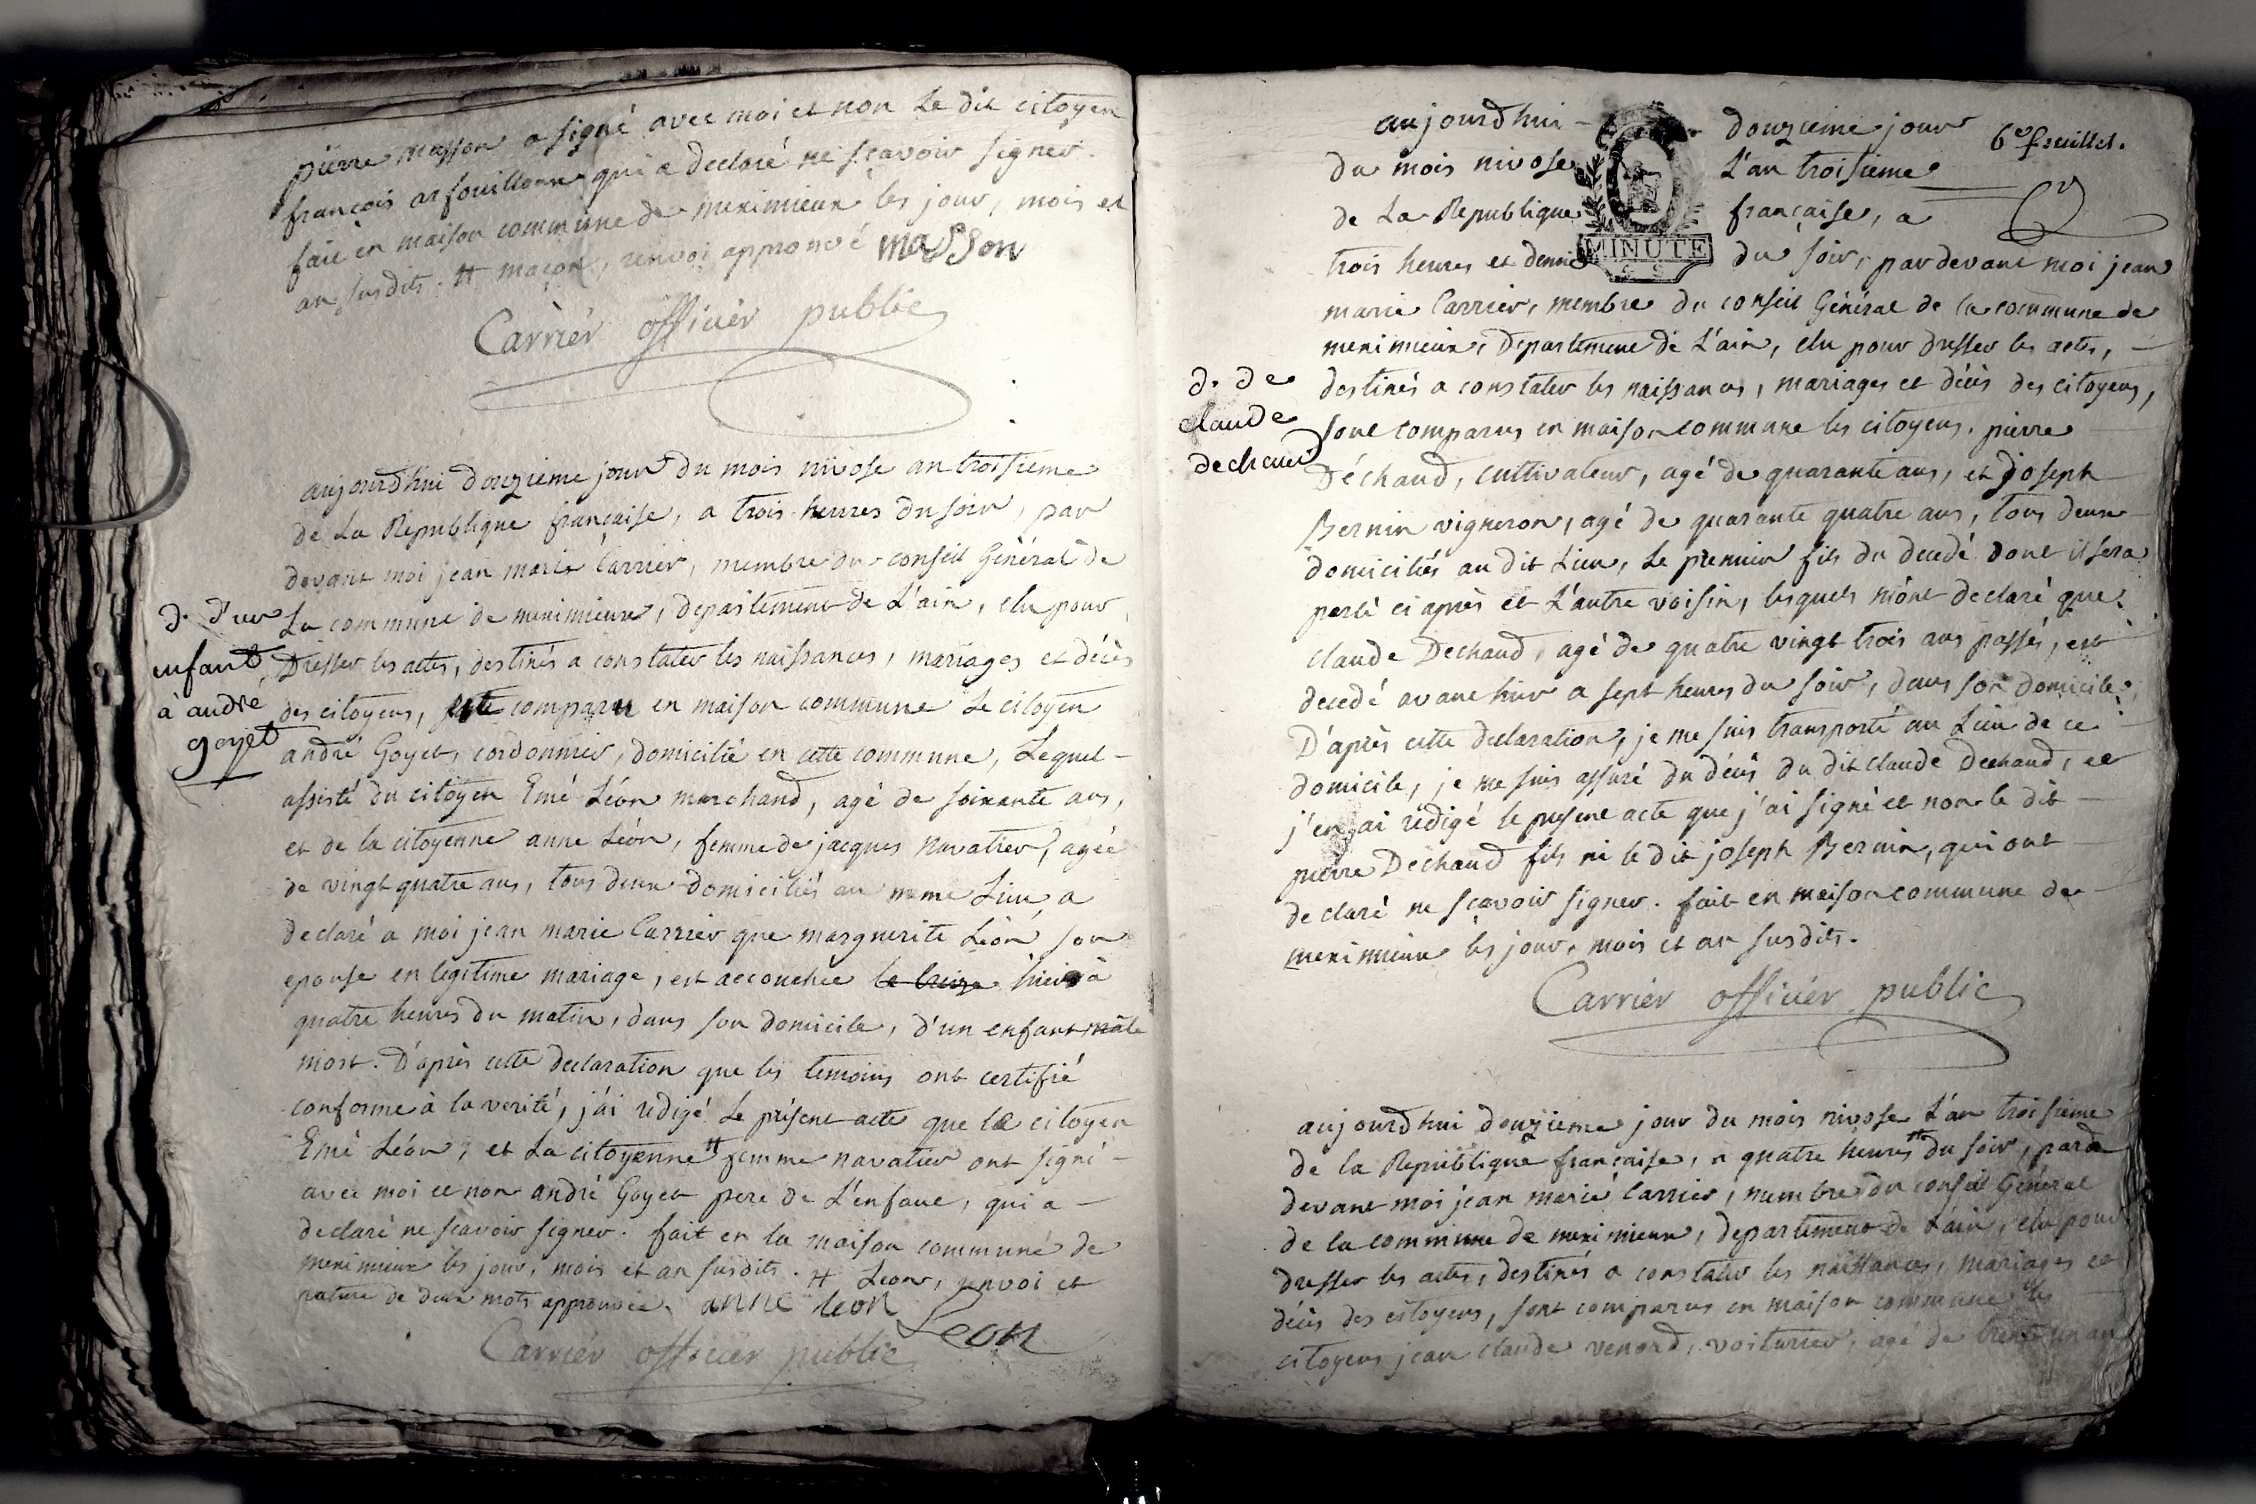 pierre masson a signé avec moi et non le dit citoyen
françois arfouillone qui a declaré ne sçavoir signer.
fait en maison commune de meximieux les jour, mois et
an susdits. # maçon, renvoi approuvé masson
Carrier officier public
d. d'un
enfant
à andré
goyet
aujourdhui douzieme jour du mois nivose an troisieme
de La Republique française, a trois heures du soir, par
devant moi jean marie Carrier, membre du conseil Général de
La commune de meximieux, departement de L'ain, elu pour
Dresser les actes, destinés a constater les naissances, mariages et décès
des citoyens, est comparu en maison commune Le citoyen
andré Goyet, cordonnier, domicilié en cette commune, Lequel
assisté du citoyen Emé Léon marchand, agé de soixante ans,
et de la citoyenne anne Léon, femme de jacques navatier, agée
de vingt quatre ans, tous deux domiciliés au meme Lieu, a
declaré a moi jean marie Carrier que marguerite Léon son
epouse en legitime mariage, est accouchée hier à
quatre heures du matin, dans son domicile, d'un enfant mâle
mort. D'après cette declaration que les temoins ont certifié
conforme à la verité, j'ai redigé Le présent acte que le citoyen
Emé Léon, et La citoyenne # femme navatier ont signé
avec moi et non andré Goyet pere de L'enfant, qui a
declaré ne sçavoir signer. fait en la maison commune de
meximieux les jour, mois et an susdits. # Leon, renvoi et
rature de deux mots approuvée. anne leon
Leon
Carrier officier public
6e feuillet.
aujourdhui douzieme jour
du mois nivose L'an troisieme
de La Republique française, a
trois heures et demie du soir, pardevant moi jean
MINUTE
marie Carrier, membre du conseil Général de la commune de
meximieux, Departement de L'ain, elu pour dresser les actes,
d. de
claude
dechaud
destinés a constater les naissances, mariages et décès des citoyens,
sont comparus en maison commune les citoyens. pierre
Déchaud, cultivateur, agé de quarante ans, et joseph
Bernin vigneron, agé de quarante quatre ans, tous deux
domiciliés au dit Lieu, Le premier fils du decedé dont il sera
parlé ci après et L'autre voisin, lesquels m'ont declaré que
claude Dechaud, agé de quatre vingt trois ans passés, est
decedé avant hier a sept heures du soir, dans son domicile,
D'après cette declaration, je me suis transporté au Lieu de ce
domicile, je me suis assuré du décès du dit claude Dechaud, et
j'en ai redigé le present acte que j'ai signé et non le dit
pierre Dechaud fils ni le dit joseph Bernin, qui ont
declaré ne sçavoir signer. fait en maison commune de
meximieux les jour, mois et an susdits.
Carrier officier public
aujourdhui douzieme jour du mois nivose L'an troisieme
de la Republique française, a quatre heures du soir, par
devant moi jean marie Carrier, membre du conseil Général
de la commune de meximieux, departement de L'ain, elu pour
dresser les actes, destinés a constater les naissances, mariages et
décès des citoyens, sont comparus en maison commune les
citoyens jean claude venard, voiturier, agé de trente un an